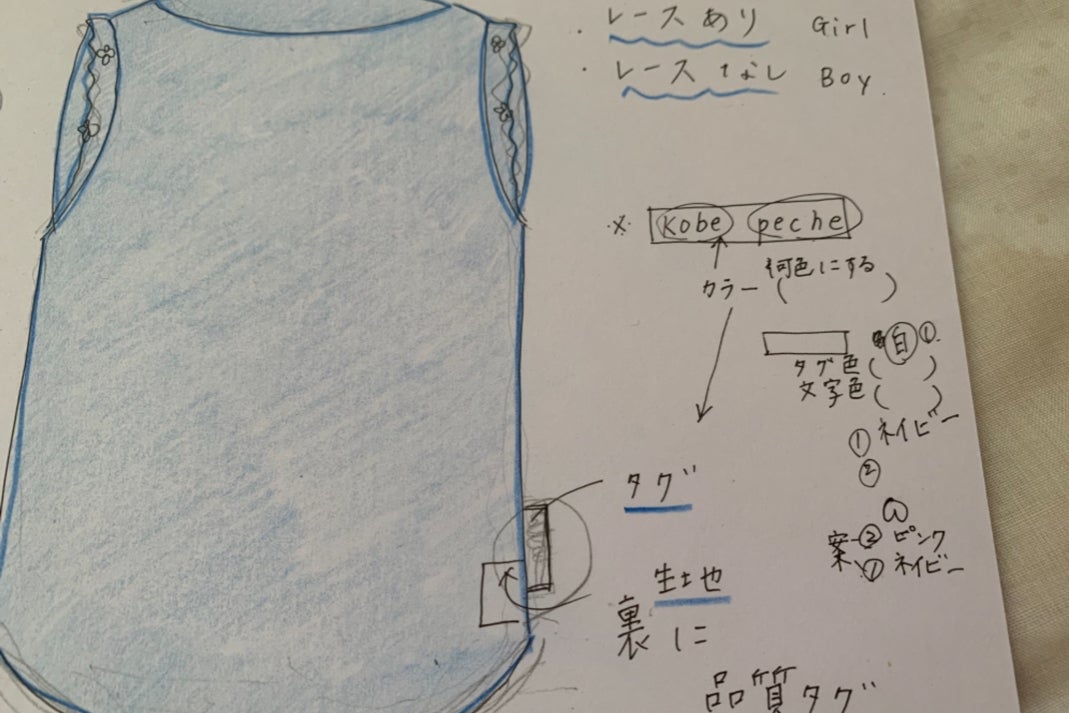 ・レースあり Girl
・レースなし Boy.
※ Kobe peche
何色にする
カラー( )
白 ①.
タグ色( )
文字色( )
① ネイビー
②
タグ
案 ② ピンク
① ネイビー
生土也
裏に
品質タグ